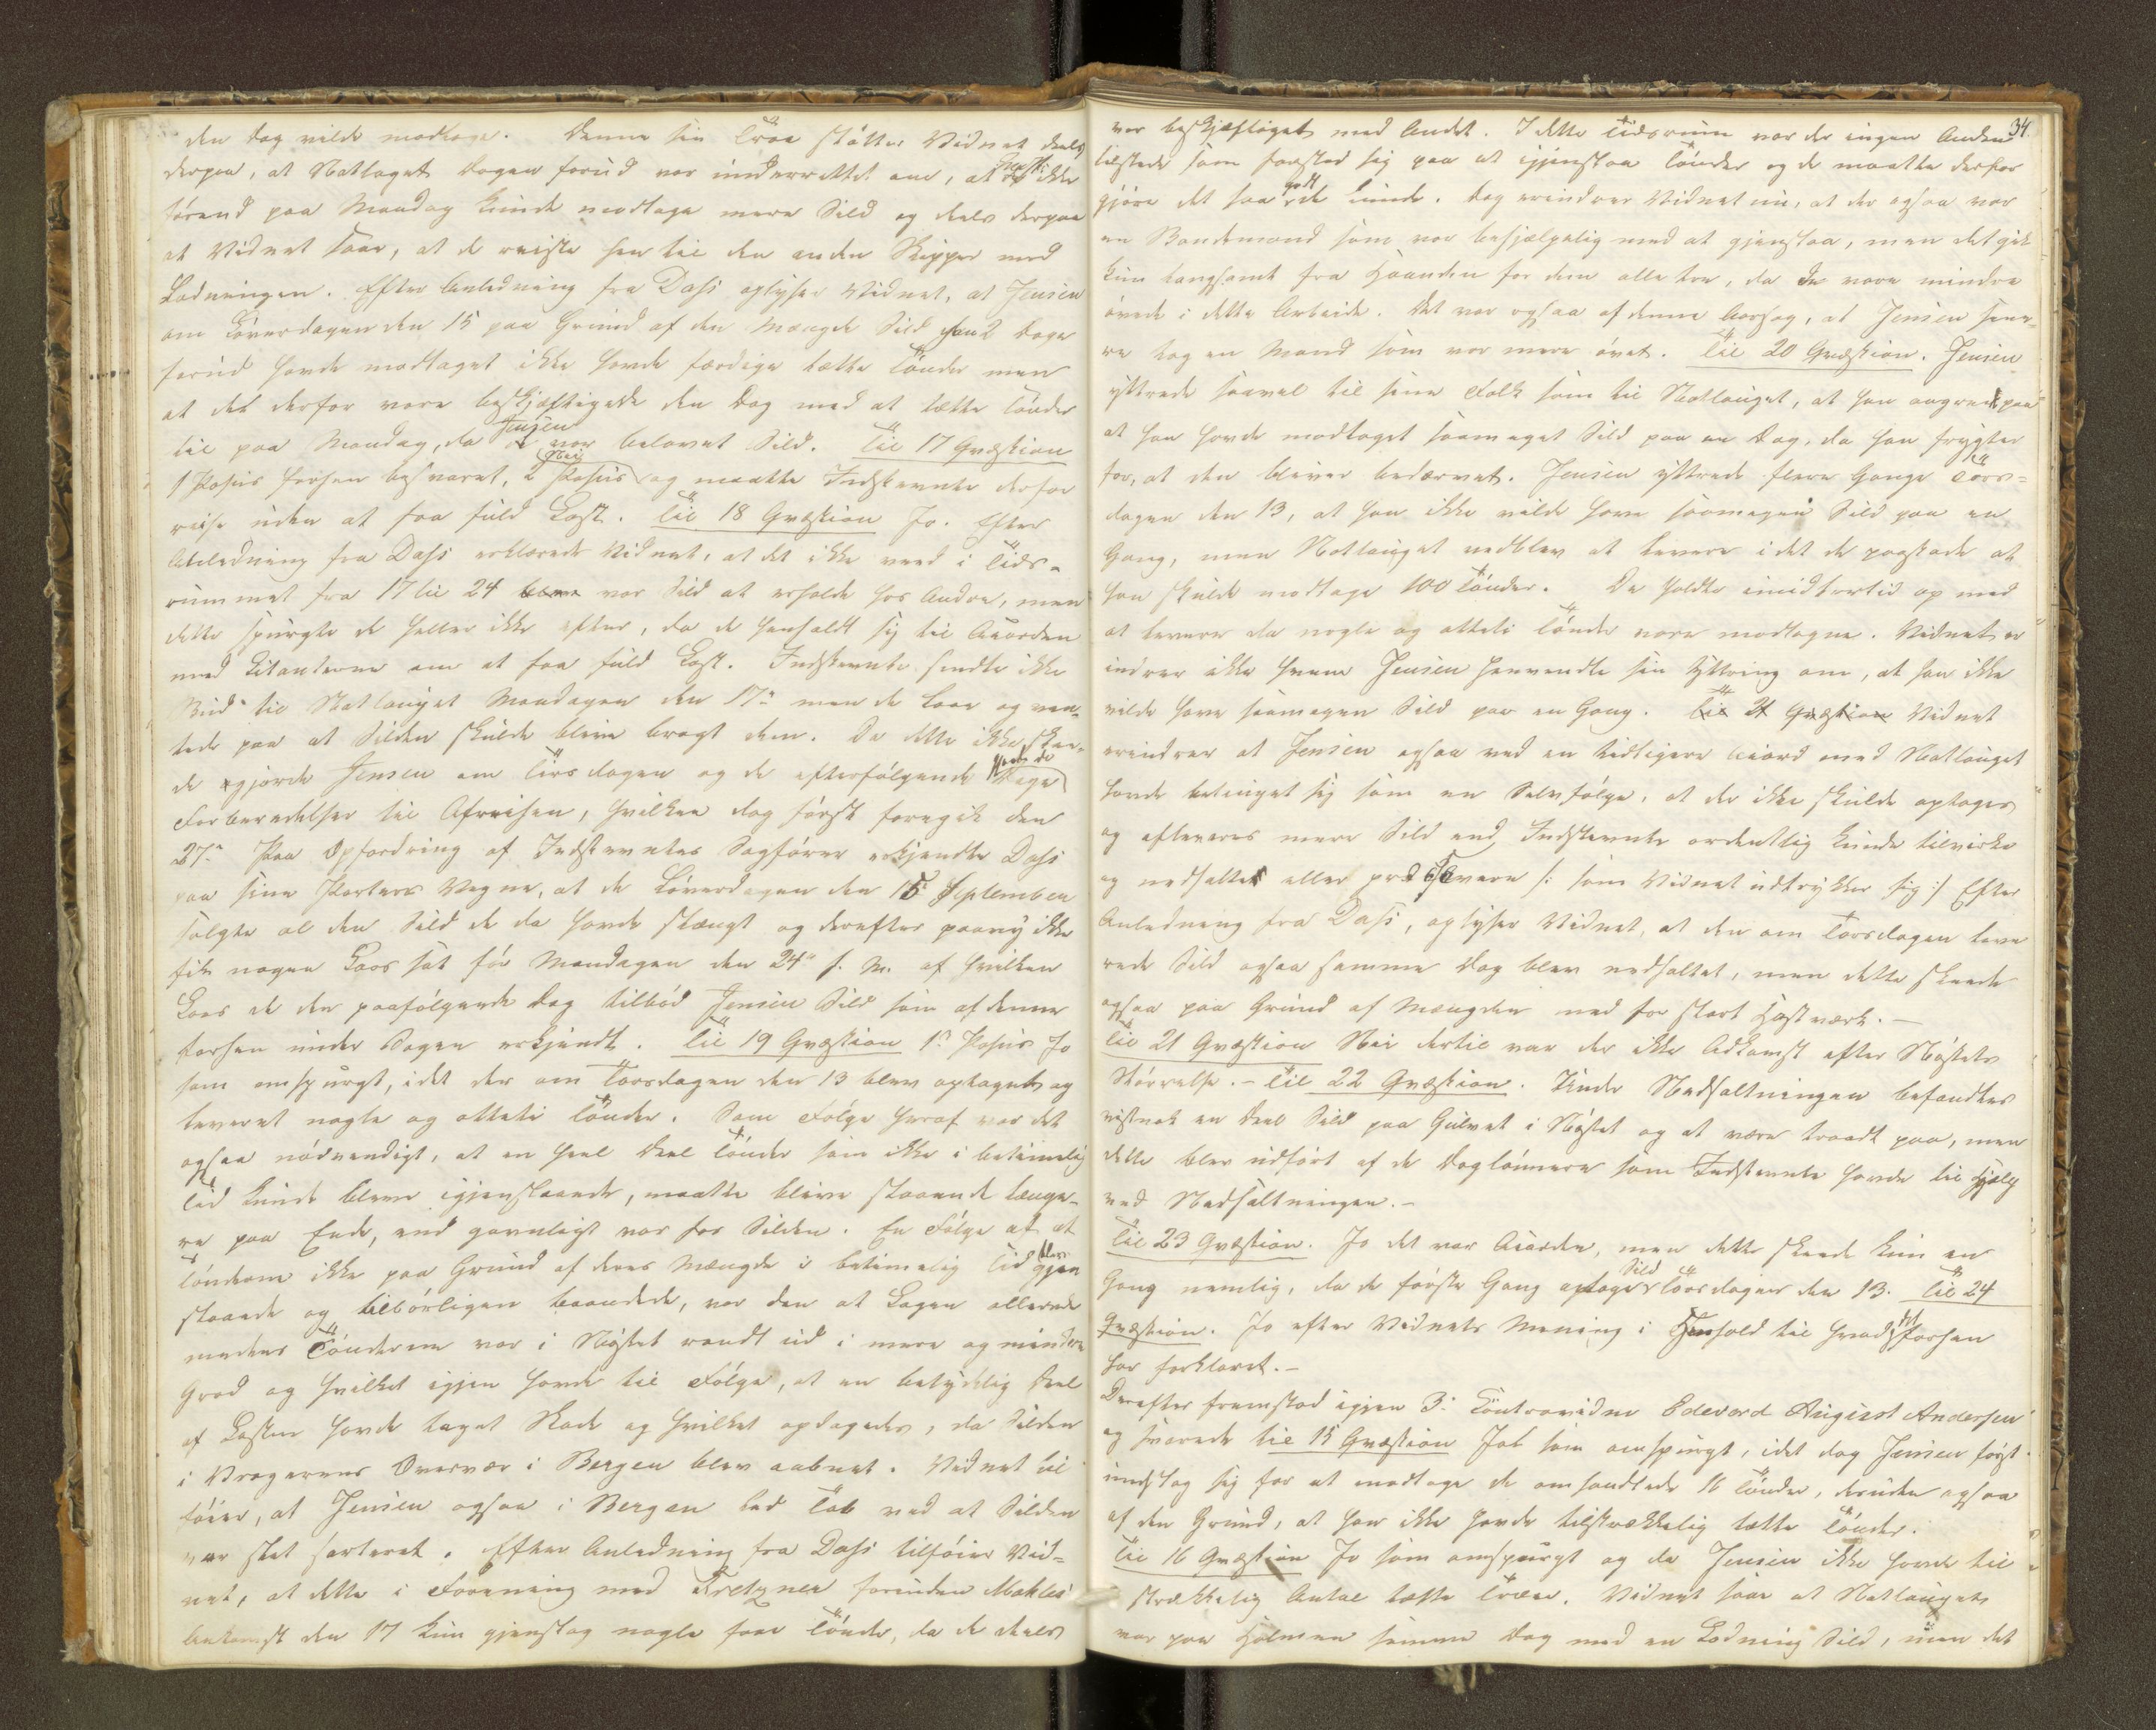 den Dag vilde modtage. Denne sin Troe støtter Vidnet deels
derpaa, at Notlaget Dagen forud var underrettet om, at de ikke
førend paa Mandag kunde modtage mere Sild og deels derpaa
at Vidnet saae, at de reiste hen til den anden Skipper med
Ladningen. Efter Anledning fra Dass oplyser Vidnet, at Jensen
om Løverdagen den 15 paa Grund af den Mængde Sild han 2 Dage
forud havde modtaget ikke havde færdige tætte Tønder men
at det derfor vare beskjæftigede den Dag med at tætte Tønder
til paa Mandag, da Jensen var belovet Sild. Til 17 Qvæstion
1 Passus forhen besvaret, 2 Passus Nei og maatte Indstevnte derfor
reise uden at faa fuld Last. Til 18 Qvæstion Jo. Efter
Anledning fra Dass erklærede Vidnet, at det ikke veed i Tids-
rummet fra 17 til 24 var Sild at erholde hos Andre, men
dette spurgte de heller ikke efter, da de henholdt sig til Accorden
med Citanterne om at faa fuld Last. Indstevnte sendte ikke
Bud til Notlauget Mandagen den 17de men de laae og ven-
tede paa at Silden skulde blive bragt dem. Da dette ikke skee-
de gjorde Jensen om Tirsdagen og de efterfølgende Dage
Forberedelser til Afreisen, hvilken dog først foregik den
27de Paa Opfordring af Indstevntes Sagfører erkjendte Dass
paa sine Parters Vegne, at de Løverdagen den 15 September
solgte al den Sild de da havde stængt og derefter paany ikke
fik nogen Laas sat før Mandagen den 24de s. M. af hvilken
Laas de den paafølgende Dag tilbød Jensen Sild som af denne
forhen under Sagen erkjendt. Til 19 Qvæstion 1ste Passus Jo
som omspurgt, idet der om Torsdagen den 13 blev optaget og
leveret nogle og otteti Tønder. Som Følge heraf var det
ogsaa nødvendigt, at en heel Deel Tønder som ikke i betimelig
Tid kunde bleve igjenslaaede, maatte blive staaende længe-
re paa Ende, end gavnligt var for Silden. En Følge af at
Tønderne ikke paa Grund af deres Mængde i betimelig Tid blev gjen
slaaede og tilbørligen baandede, var den at Lagen allerede
medens Tønderne var i Nøstet randt ud i mere og mindre
Grad og hvilket igjen havde til Følge, at en betydelig Deel
af Lasten havde taget Skade og hvilket opdagedes, da Silden
i Vragerens Overvær i Bergen blev aabnet. Vidnet til
føier, at Jensen ogsaa i Bergen led Tab ved at Silden
var slet sorteret. Efter Anledning fra Dass tilføier Vid-
net, at dette i Forening med Fretzner forinden Mækles
Ankomst den 17 kun gjenslog nogle faae Tønder, da de deels
34.
var beskjæftiget med Andet. I dette Tidsrum var der ingen Anden
tilstede som forstod sig paa at igjenslaa Tønder og de maatte derfor
gjøre det saa godt de kunde. Dog erindrer Vidnet nu, at der ogsaa var
en Bondemand som var behjælpelig med at gjenslaa, men det gik
kun langsomt fra Haanden for dem alle tre, da de vare mindre
øvede i dette Arbeide. Det var ogsaa af denne Aarsag, at Jensen sene-
re tog en Mand som var mere øvet. Til 20 Qvæstion. Jensen
yttrede saavel til sine Folk som til Notlauget, at han angrede paa
at han havde modtaget saameget Sild paa en Dag, da han frygter
for, at den bliver bedærvet. Jensen yttrede flere Gange Tors-
dagen den 13, at han ikke vilde have saamegen Sild paa en
Gang, men Notlauget vedblev at levere idet de paastode at
han skulde modtage 100 Tønder. De holdte imidlertid op med
at levere da nogle og otteti Tønder vare modtagne. Vidnet er
indrer ikke hvem Jensen henvendte sin Yttring om, at han ikke
vilde have saamegen Sild paa en Gang. Til 21 Qvæstion Vidnet
erindrer at Jensen ogsaa ved en tidligere Accord med Notlauget
havde betinget sig som en Selvfølge, at der ikke skulde optages
og afleveres mere Sild end Indstevnte ordentlig kunde tilvirke
og nedsaltes eller presevere /: som Vidnet udtrykker sig :/ Efter
Anledning fra Dass, oplyser Vidnet, at den om Torsdagen leve
rede Sild ogsaa samme Dag blev nedsaltet, men dette skeede
ogsaa paa Grund af Mængden med for stort Hastværk.—
Til 21 Qvæstion Nei dertil var der ikke Adkomst efter Nøstets
Størrelse.— Til 22 Qvæstion. Under Nedsaltningen befandtes
vistnok en Deel Sild paa Gulvet i Nøstet og at være traadt paa, men
dette blev udført af de Dagløinnere som Indstevnte havde til Hjælp
ved Nedsaltningen.—
Til 23 Qvæstion. Jo det var Accorden, men dette skeede kun en
Gang nemlig, da de første Gang optoge Sild Torsdagen den 13. Til 24
Qvæstion. Jo efter Vidnets Mening i Henhold til hvad det forhen
har forklaret.—
Derefter fremstod igjen 3de Contravidne Edevard August Andersen
og svarede til 15 Qvæstion Jab som omspurgt, idet dog Jensen først
undslog sig for at modtage de omhandlede 16 Tønder, desuden ogsaa
af den Grund, at han ikke havde tilstrækkelig tætte Tønder.
Til 16 Qvæstion Jo som omspurgt og da Jensen ikke havde til
strækkelig Antal tætte Træer. Vidnet saae at Notlauget
var paa Holmen samme Dag med en Ladning Sild, men det